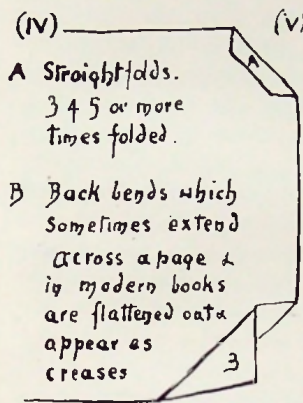 (IV) (V)
A
A Straight folds.
3 4 5 or more
times folded.
B Back bends which
Sometimes extend
across a page &
in modern books
are flattened out &
appear as
creases
3